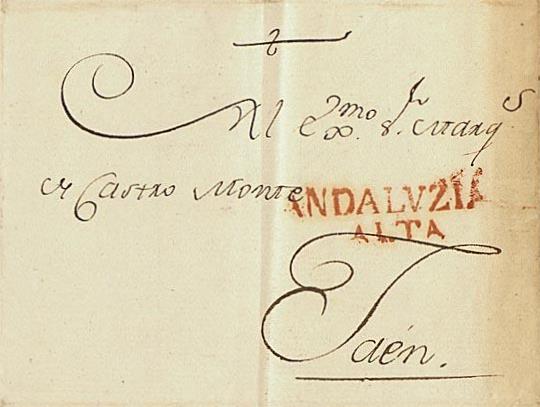 Al exmo. Sr. Marqs
de Castro Monte
ANDALVZIA
ALTA
Jaén.